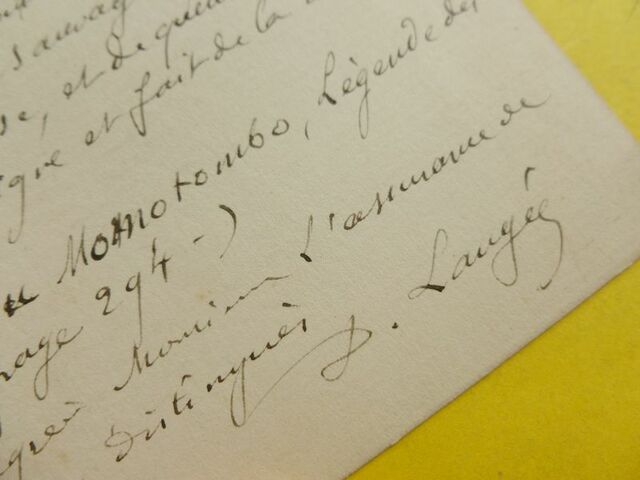 sauvag
se, et de quel
igre et fait de la
Momotombo, Légende des
page 294 -)
Monsieur l'assurance de
distingués
D. Laugée